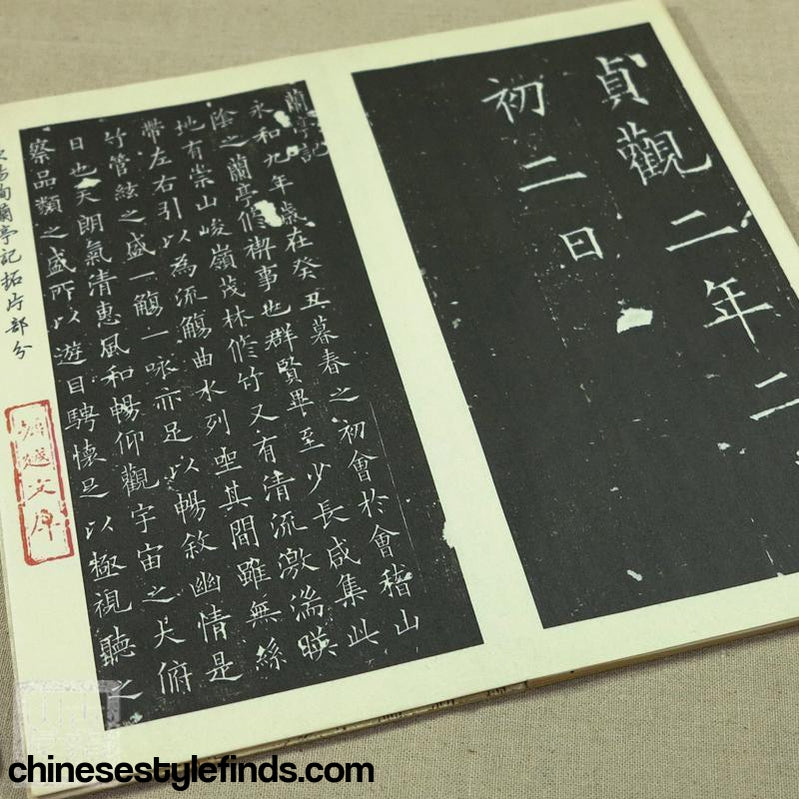 貞觀二年二
初二日
蘭亭記
永和九年歲在癸丑暮春之初會於會稽山
陰之蘭亭修禊事也群賢畢至少長咸集此
地有崇山峻嶺茂林修竹又有清流激湍暎
帶左右引以為流觴曲水列坐其間雖無絲
竹管絃之盛一觴一咏亦足以暢敘幽情是
日也天朗氣清惠風和暢仰觀宇宙之大俯
察品類之盛所以遊目騁懷足以極視聽之
陽詢蘭亭記拓片部分
文库
chinesestylefinds.com